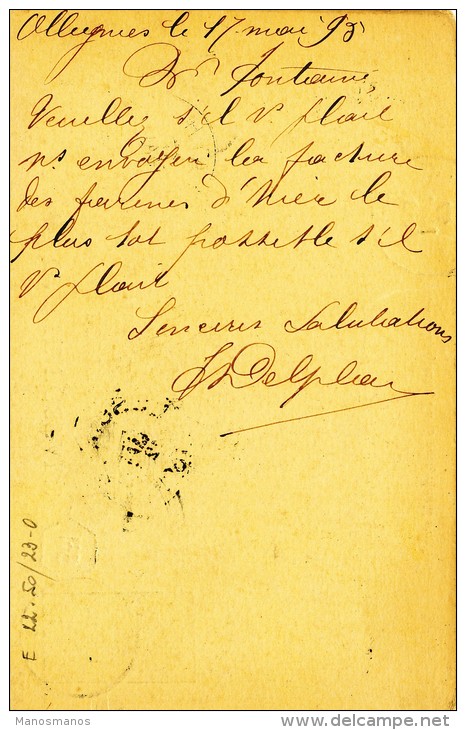 le 17 mai 95
Mr Fontaine,
Veuillez s'il v. plait
ns envoyer la facture
des farines d'hier le
plus tot possible s'il
v. plait
Sinceres Salutations
E 22.50/23-0
Manosmanos
www.delcampe.net